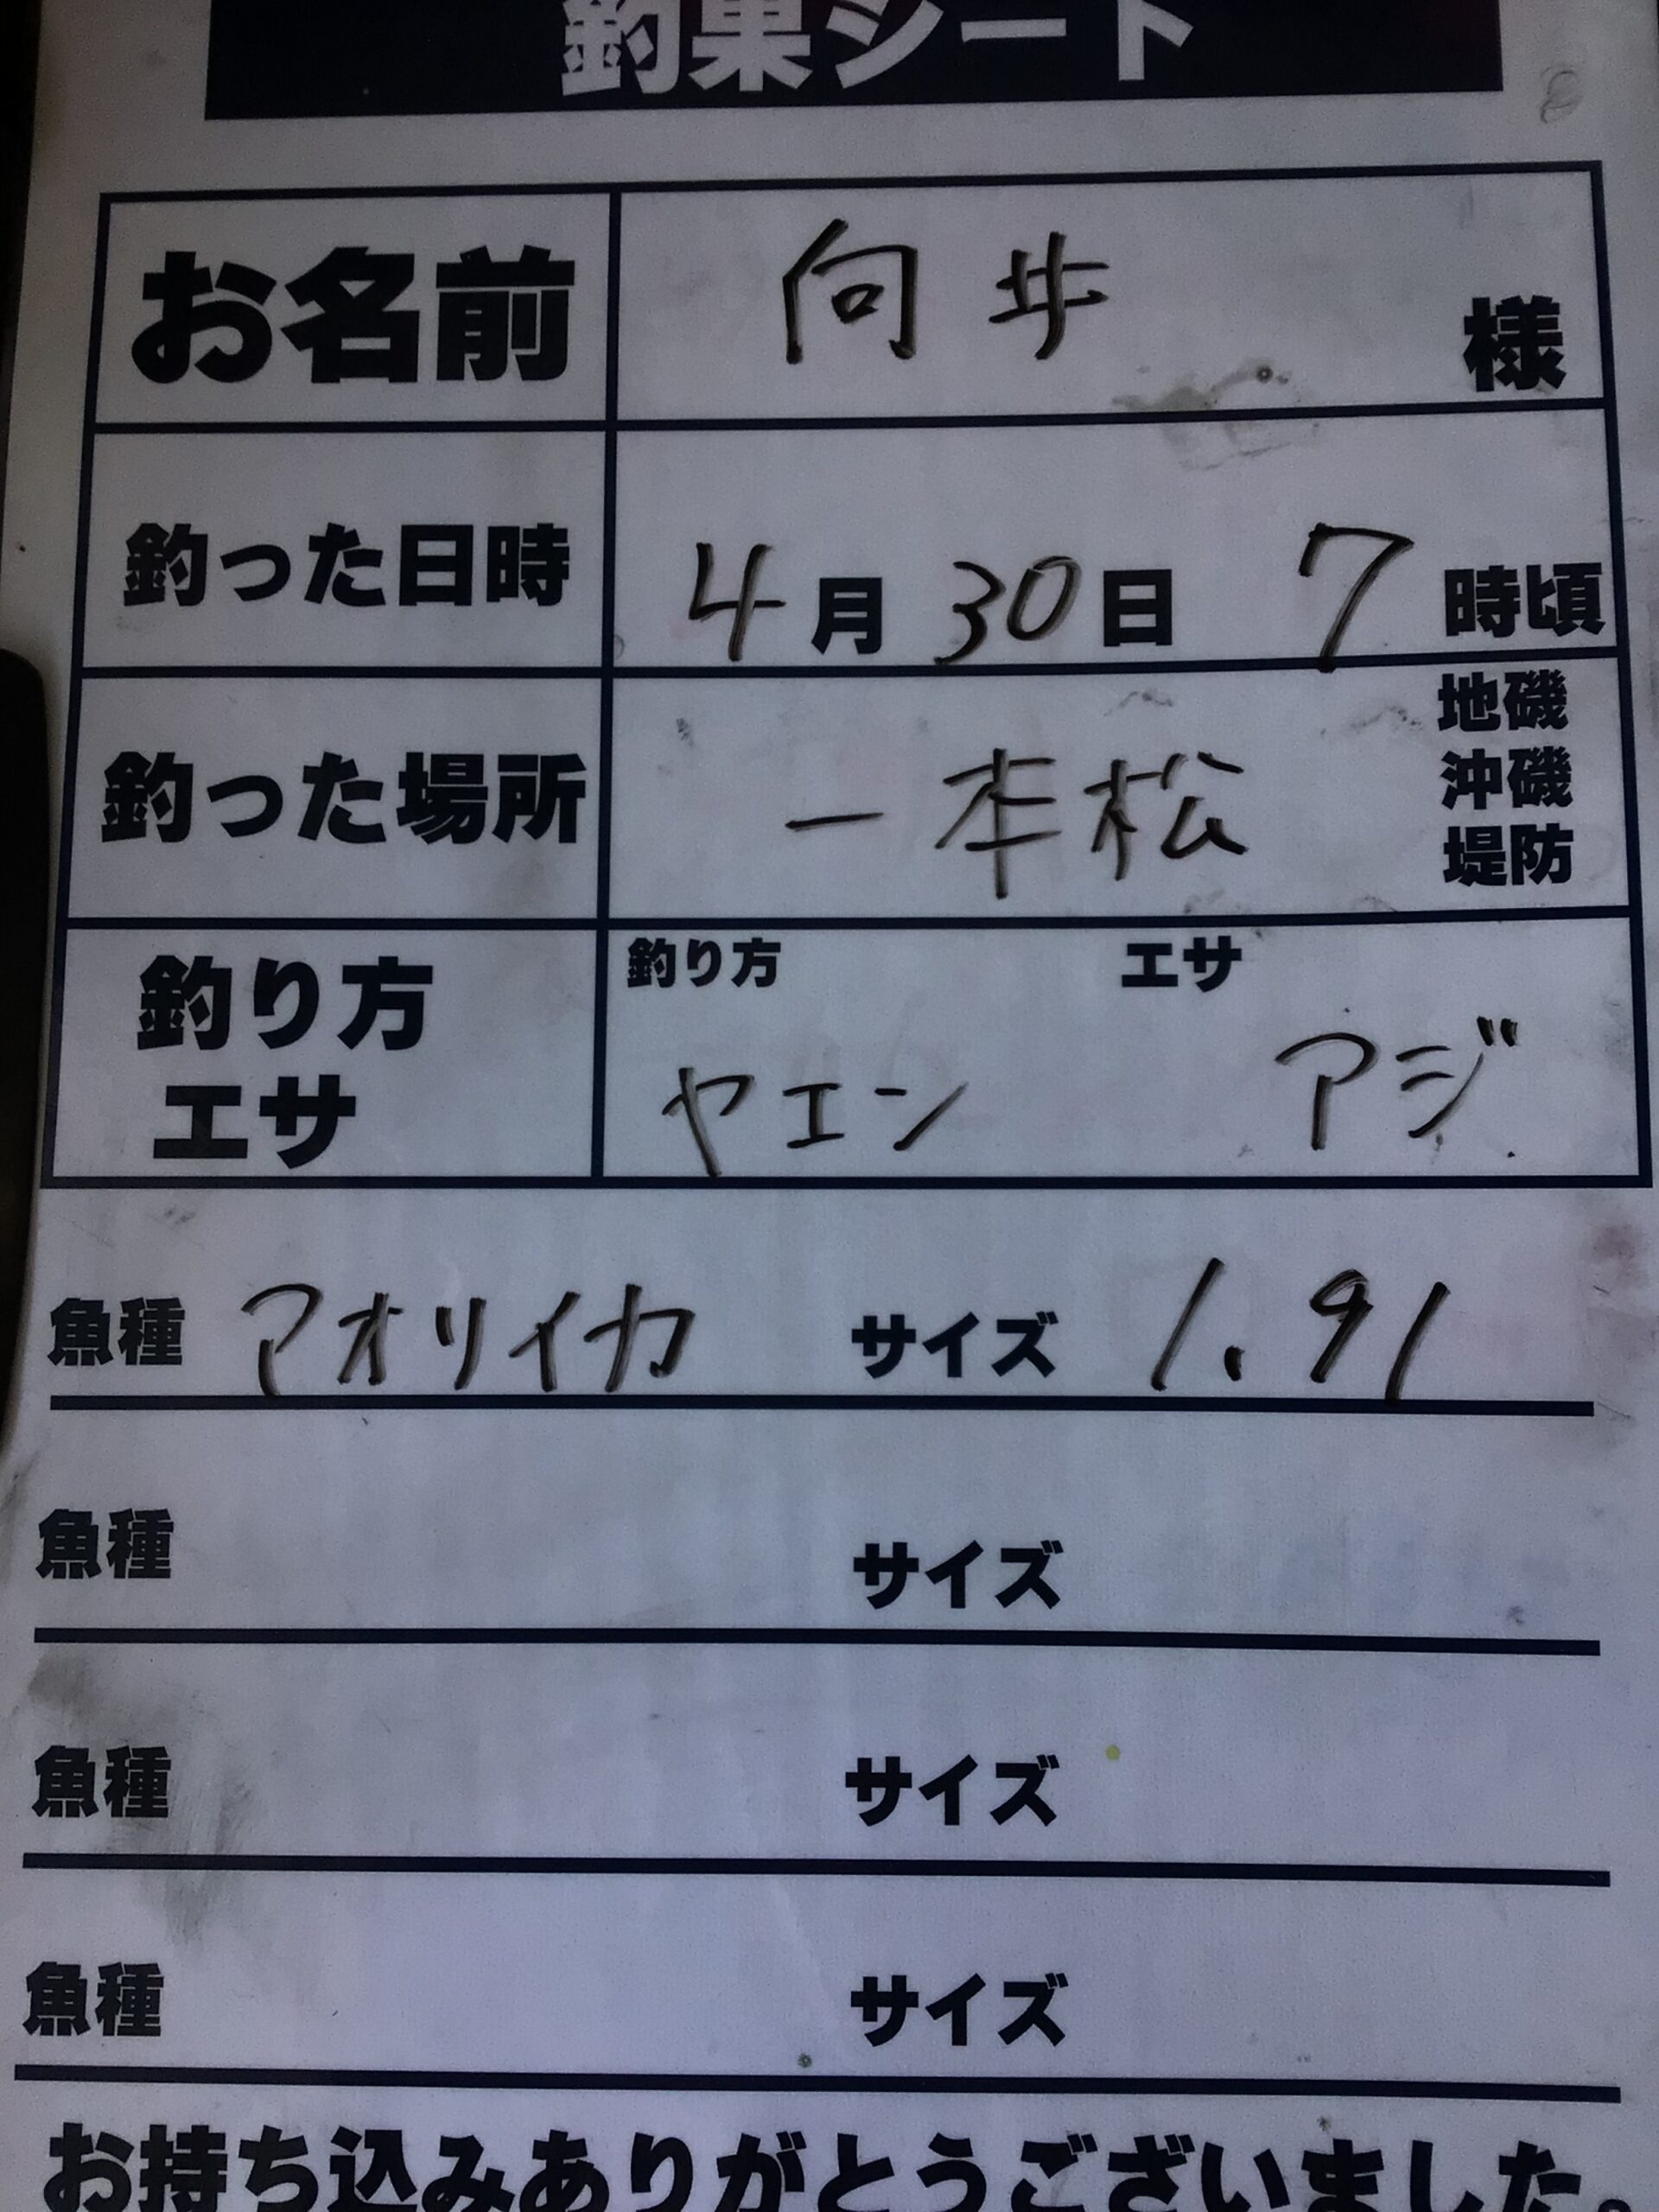 釣果シート
お名前 向井 様
釣った日時 4月30日 7時頃
釣った場所 一本松 地磯 沖磯 堤防
釣り方 エサ
釣り方 ヤエン エサ アジ
魚種 アオリイカ サイズ 1.91
魚種 サイズ
魚種 サイズ
魚種 サイズ
お持ち込みありがとうございました。